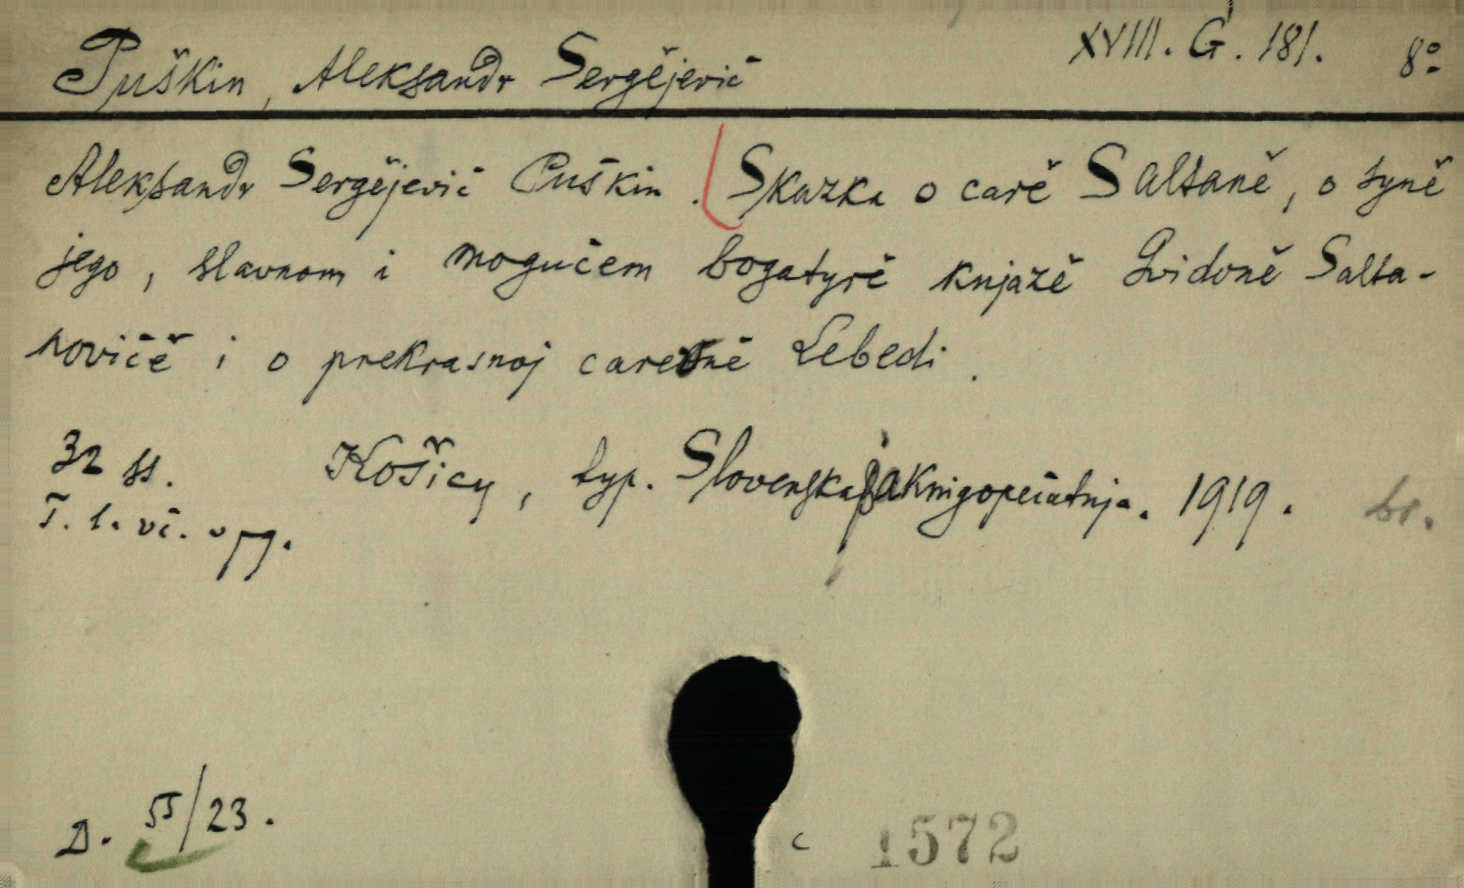 Puškin, Aleksandr Sergějevič XVIII. G. 181. 8º
Aleksandr Sergějevič Puškin. Skazka o carě Saltaně, o syně
jego, slavnom i mogučem bogatyrě knjazě Gvidoně Salta-
novičě i o prekrasnoj carevně Lebedi.
32 ss. Košicy, typ. Slovenskaja knigopečatnja. 1919. br.
T. l. vč. v pg.
D. 55/23.
c 1572